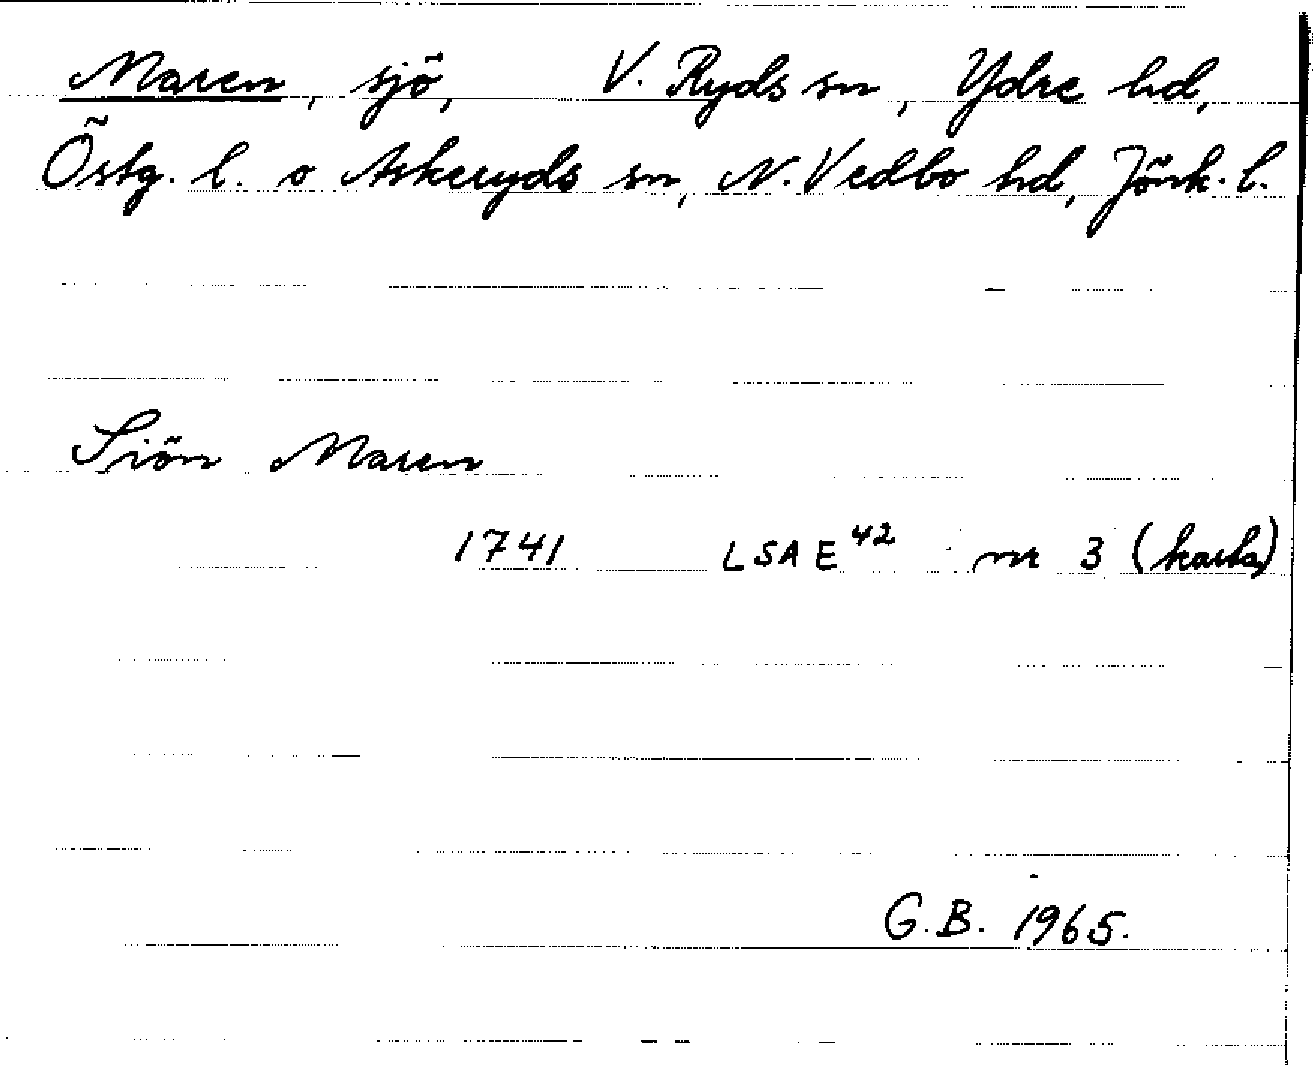 Maren, sjö, V. Ryds sn, Ydre hd,
Östg. l. o Askeryds sn, N. Vedbo hd, Jönk. l.
Siön Maren
1741 LSA E42 nr 3 (karta)
G.B. 1965.